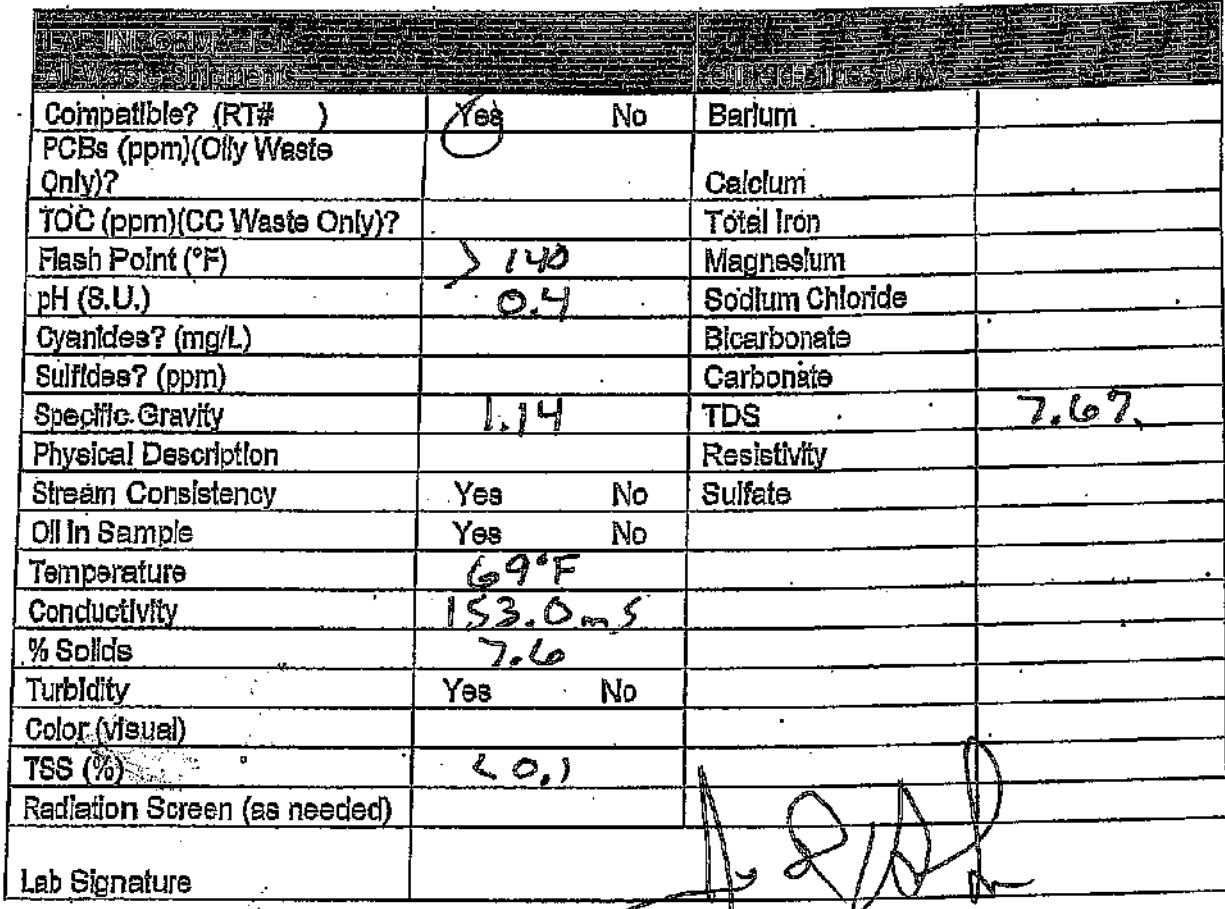 LAB INFORMATION
All Waste Shipments
Compatible? (RT# ) Yes No Barium
PCBs (ppm)(Oily Waste
Only)? Calcium
TOC (ppm)(CC Waste Only)? Total Iron
Flash Point (°F) > 140 Magnesium
pH (S.U.) 0.4 Sodium Chloride
Cyanides? (mg/L) Bicarbonate
Sulfides? (ppm) Carbonate
Specific Gravity 1.14 TDS 7.6%
Physical Description Resistivity
Stream Consistency Yes No Sulfate
Oil in Sample Yes No
Temperature 69°F
Conductivity 153.0 mS
% Solids 7.6
Turbidity Yes No
Color (visual)
TSS (%) < 0.1
Radiation Screen (as needed)
Lab Signature